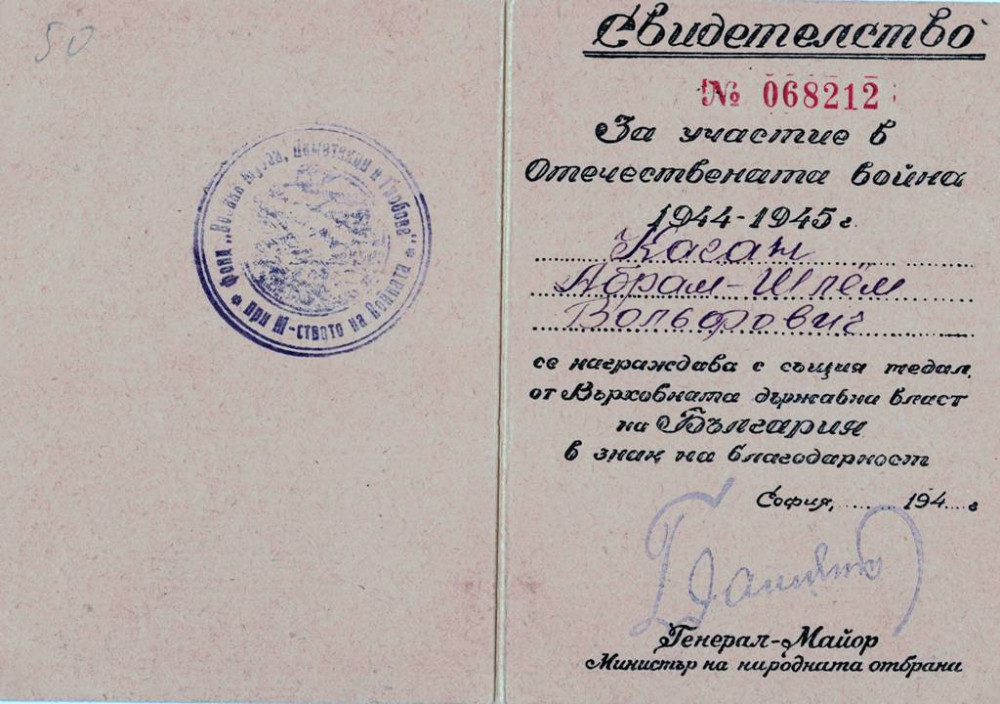 50
Фонд „Военни Музеи, Паметници и Гробове"
при М-ството на Войната
Свидетелство
№ 068212
За участие в
Отечествената война
1944-1945 г.
Каган
Абрам-Шлём
Вольфович
се награждава с същия медал,
от Върховната държавна власт
на България
в знак на благодарност
София, ........ 194....г
Генерал-Майор
Министър на народната отбрана